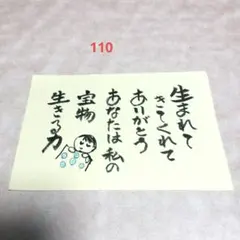 110
生まれて
きてくれて
ありがとう
あなたは私の
宝物
生きる力